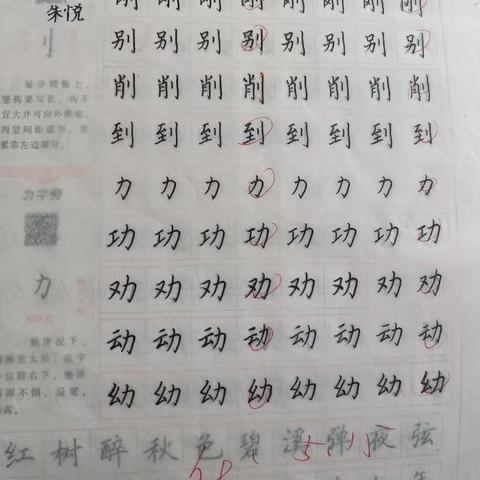 朱悦
刚 刚 刚 刚 刚 刚 刚 刚
别 别 别 别 别 别 别 别
削 削 削 削 削 削 削 削
到 到 到 到 到 到 到 到
力字旁
力 力 力 力 力 力 力 力
功 功 功 功 功 功 功 功
力
劝 劝 劝 劝 劝 劝 劝 劝
动 动 动 动 动 动 动 动
幼 幼 幼 幼 幼 幼 幼 幼
红 树 醉 秋 色 碧 溪 弹 夜 弦